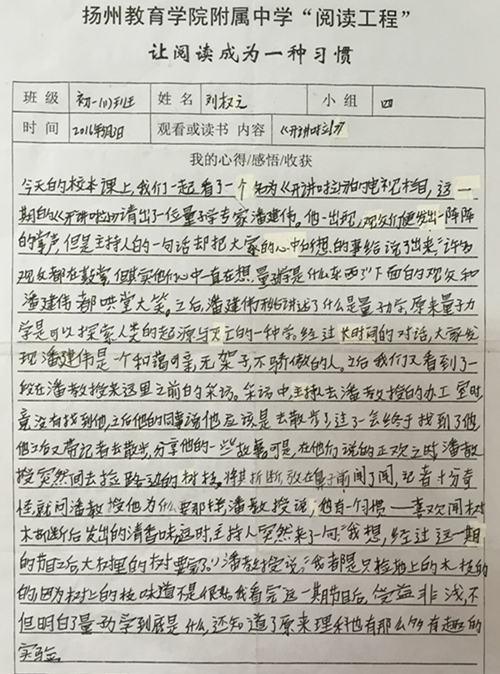 扬州教育学院附属中学“阅读工程”
让阅读成为一种习惯
班 级 初一(1)班 姓 名 刘权元 小 组 四
时 间 2016年 观看或读书 内容 《开讲啦》
我的心得/感悟/收获
今天的校本课上,我们一起看了一个名为《开讲啦》的电视栏目,这一
期的《开讲啦》请出了一位量子学专家潘建伟。他一出现,观众们便发出一阵阵
的掌声,但是主持人的一句话却把大家的心中所想的事给说了出来“许多
观众都在鼓掌,但其实他们心中一直在想,量子学是什么东西?”下面的观众和
潘建伟都哄堂大笑。之后潘建伟开始讲述了什么是量子力学,原来量子力
学是可以探索人类的起源与的一种学。经过长时间的对话,大家发
现潘建伟是一个和蔼可亲,无架子,不骄傲的人。之后我们又看到了一
段在潘教授来这里之前的采访。采访中,主持人去潘教授的办工室时
竟没有找到他,之后他的同事说他应该是去散步了,过了一会终于找到了他,
他之后又带记者去散步,分享他的一些故事,可是,在他们说的正欢之时,潘教
授突然间去捡路边的树枝,将其折断放在鼻子前闻了闻,记者十分奇
怪就问潘教授他为什么要那样,潘教授说,他有一习惯——喜欢闻树
木折断后发出的清香味,这时主持人突然来了一句“我想,经过这一期
的节目之后大校里的树要了”潘教授说:“我都是只捡地上的木枝的
的,因为树上的枝味道不是很好”我看完这一期节目后,受益非浅,不
但明白了量子力学到底是什么,还知道了原来理科也有那么多有趣的
实验。